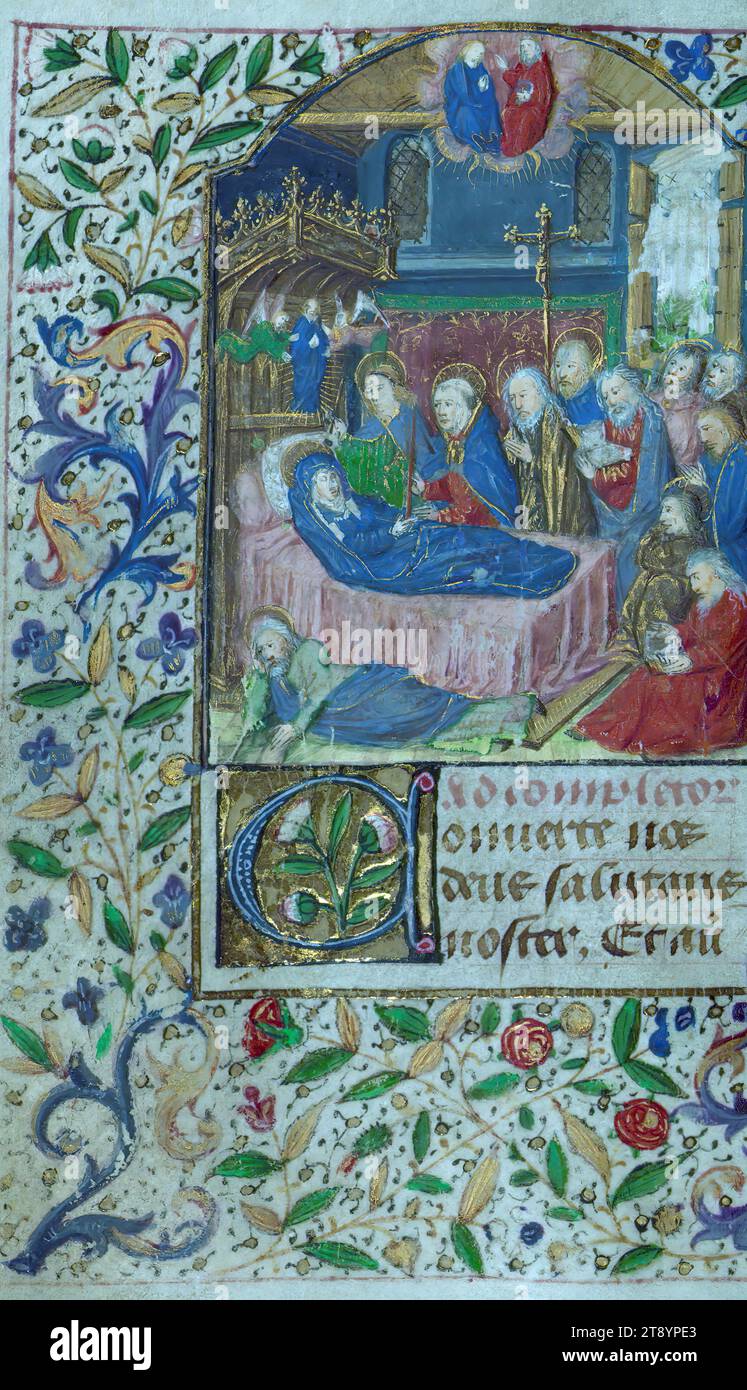 Ad completor
onuerte nos
deus salutaris
noster. Et au
alamy
Image ID: 2T8YPE3
www.alamy.com